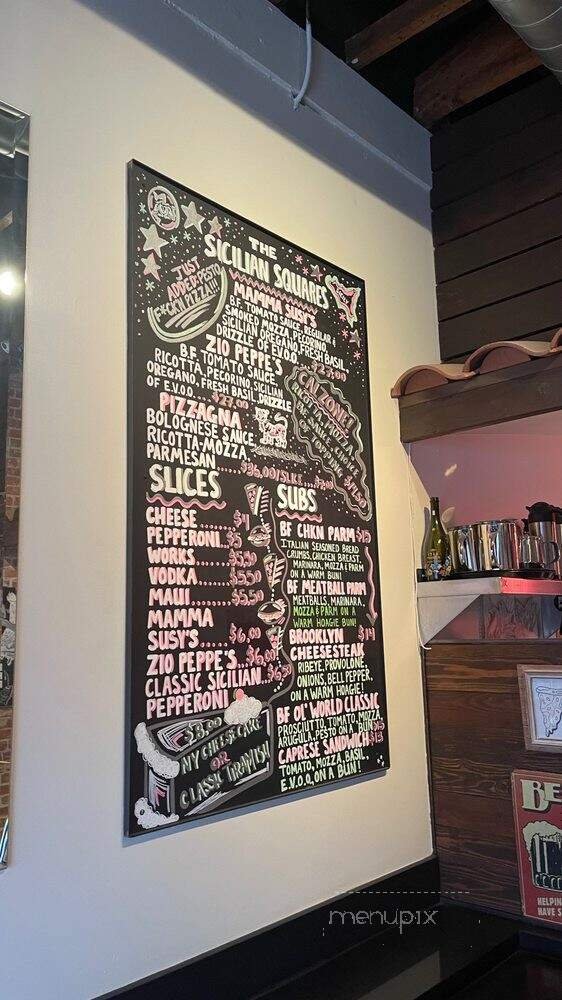 THE
SICILIAN SQUARES
JUST
ADDED! PESTO
F*CK! PIZZA!!!
MAMMA SUSY'S
B.F. TOMATO SAUCE, REGULAR &
SMOKED MOZZA, PECORINO,
SICILIAN OREGANO, FRESH BASIL,
DRIZZLE OF E.V.O.O.
ZIO PEPPE'S
B.F. TOMATO SAUCE,
RICOTTA, PECORINO, SICILIAN
OREGANO, FRESH BASIL, DRIZZLE
OF E.V.O.O. ... $27.00
PIZZAGNA
BOLOGNESE SAUCE,
RICOTTA-MOZZA
PARMESAN
$36.00/SLICE
CALZONE!
RICOTTA, MOZZ
TOPPING
SLICES
CHEESE ....... $4
PEPPERONI .. $5
WORKS ....... $5.50
VODKA ....... $5.50
MAUI ....... $5.50
MAMMA
SUSY'S ....... $6.00
ZIO PEPPE'S ..
CLASSIC SICILIAN .. $6.50
PEPPERONI
$8.00
NY CHEESECAKE
OR
CLASSIC TIRAMISU
SUBS
BF CHKN PARM $15
ITALIAN SEASONED BREAD
CRUMBS, CHICKEN BREAST,
MARINARA, MOZZA & PARM
ON A WARM BUN!
BF MEATBALL PARM
MEATBALLS, MARINARA,
MOZZA & PARM ON A
WARM HOAGIE BUN!
BROOKLYN $14
CHEESESTEAK
RIBEYE, PROVOLONE,
ONIONS, BELL PEPPER,
ON A WARM HOAGIE!
BF OL' WORLD CLASSIC
PROSCIUTTO, TOMATO, MOZZA,
ARUGULA, PESTO ON A BUN
CAPRESE SANDWICH $13
TOMATO, MOZZA, BASIL,
E.V.O.O, ON A BUN!
BE
HELPIN
HAVE S
menupix